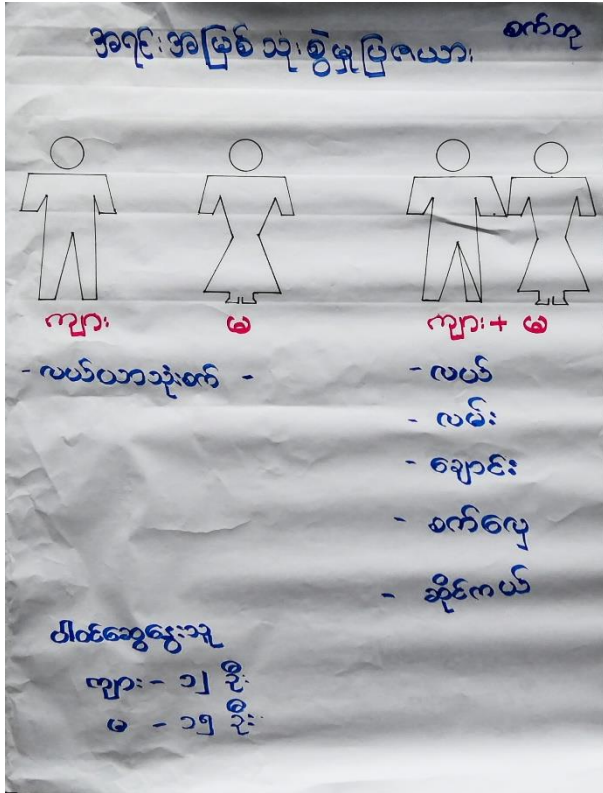 စက်တု
အရင်းအမြစ်သုံးစွဲမှုပြဇယား
ကျား မ ကျား + မ
- လယ်ယာသုံးစက် - - လယ်
- လမ်း
- ချောင်း
- စက်လှေ
- ဆိုင်ကယ်
ပါဝင်ဆွေးနွေးသူ
ကျား - ၁၂ ဦး
မ - ၁၅ ဦး